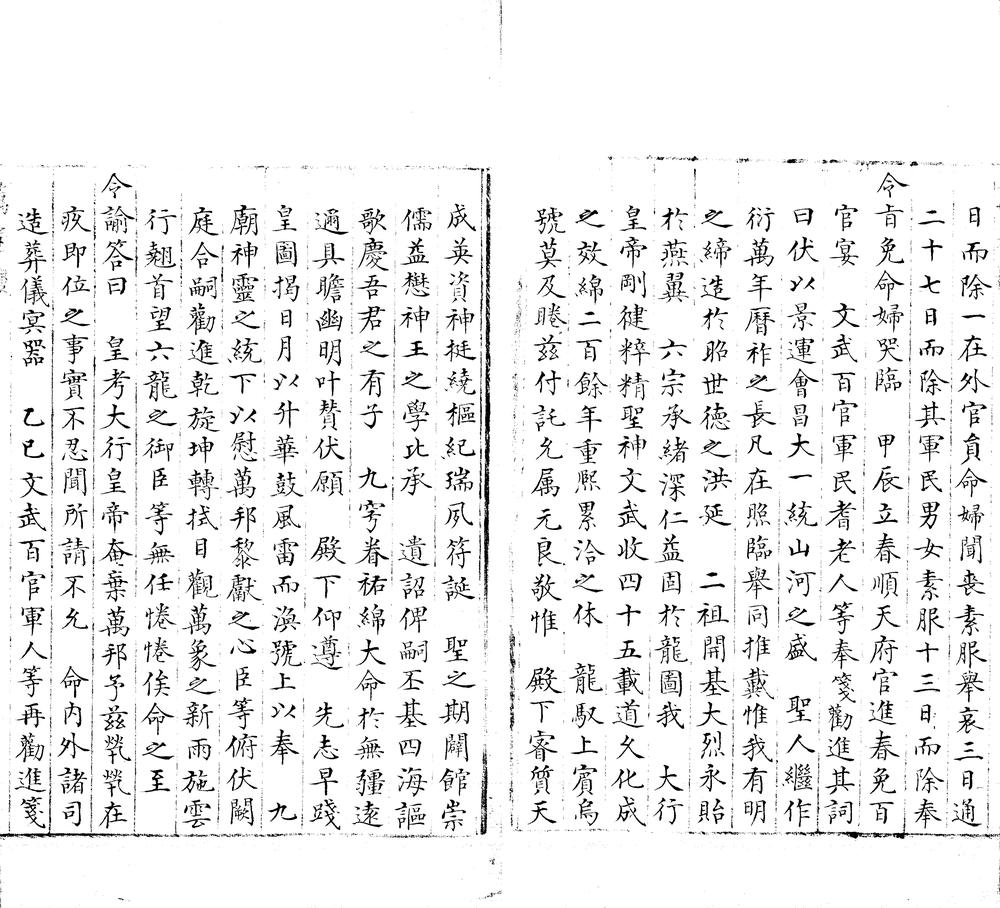 日而除一在外官員命婦聞喪素服舉哀三日通
二十七日而除其軍民男女素服十三日而除奉
令旨免命婦哭臨　甲辰立春順天府官進春免百
官宴　文武百官軍民耆老人等奉箋勸進其詞
曰伏以景運會昌大一統山河之盛　聖人繼作
衍萬年曆祚之長凡在照臨舉同推戴惟我有明
之締造於昭世德之洪延　二祖開基大烈永貽
於燕翼　六宗承緒深仁益固於龍圖我　大行
皇帝剛健粹精聖神文武收四十五載道久化成
之效綿二百餘年重熙累洽之休　龍馭上賓烏
號莫及睠兹付託允属元良敬惟　殿下睿質天
成英資神挺繞樞紀瑞夙符誕　聖之期闢館崇
儒益懋神王之學比承　遺詔俾嗣丕基四海謳
歌慶吾君之有子　九穹眷祐綿大命於無疆遠
邇具瞻幽明叶賛伏願　殿下仰遵　先志早踐
皇圖揭日月以升華鼓風雷而渙號上以奉　九
廟神靈之統下以慰萬邦黎獻之心臣等俯伏闕
庭合嗣勸進乾旋坤轉拭目觀萬象之新雨施雲
行翹首望六龍之御臣等無任惓惓俟命之至
令諭答曰　皇考大行皇帝奄棄萬邦予兹煢煢在
疚即位之事實不忍聞所請不允　命内外諸司
造葬儀冥器　乙巳文武百官軍人等再勸進箋